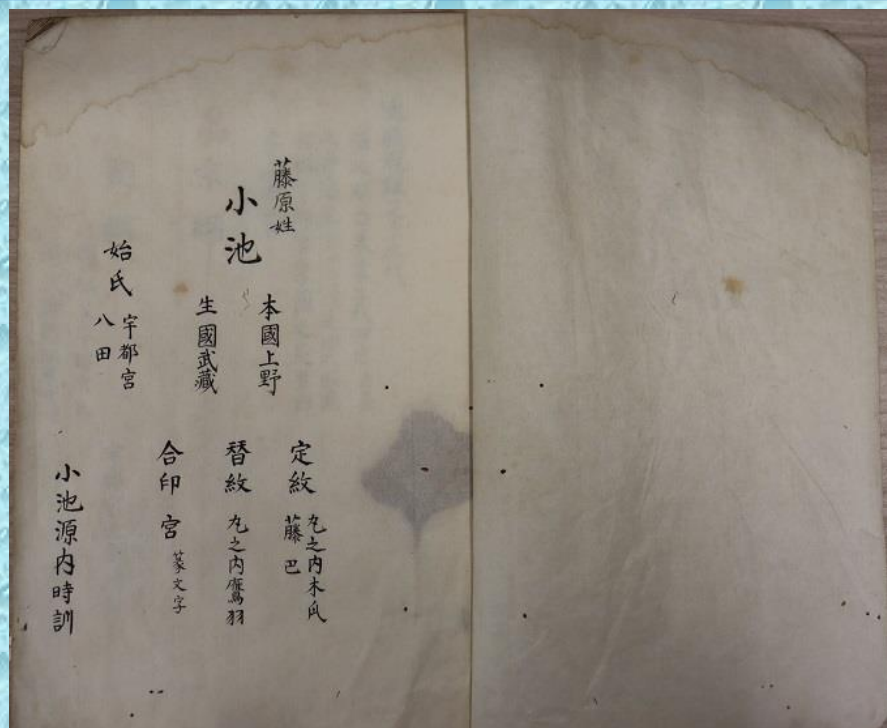 藤原姓
小池
本國上野
生國武藏
始氏
宇都宮
八田
定紋
丸之内木瓜
藤巴
替紋
丸之内鷹羽
合印
宮
篆文字
小池源内時訓